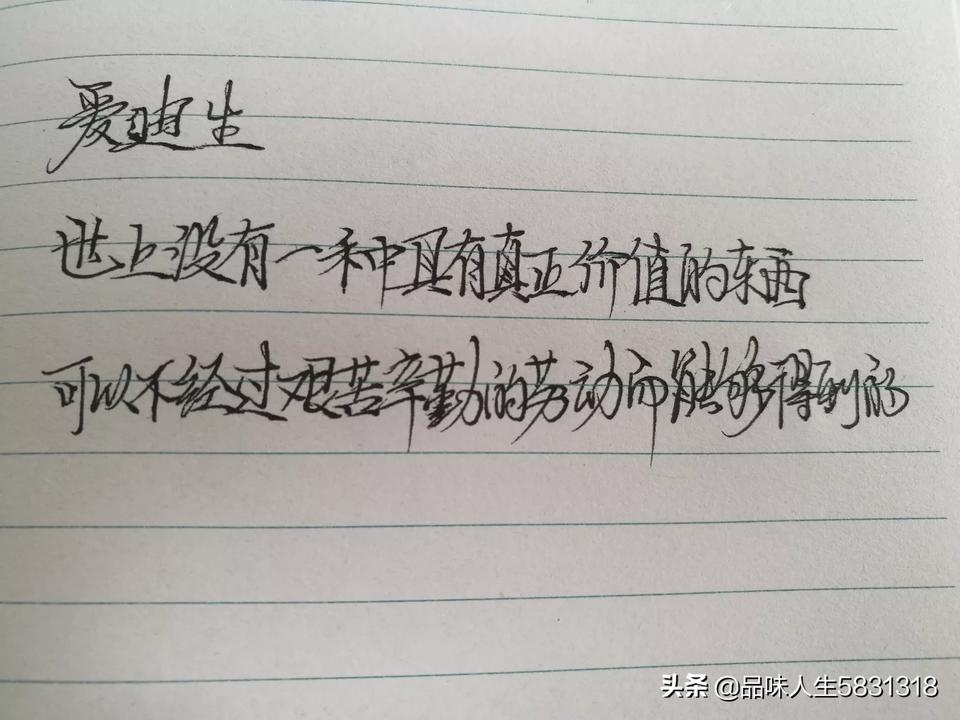 爱迪生
世上没有一种具有真正价值的东西
可以不经过艰苦辛勤的劳动而能够得到的
头条 @品味人生5831318